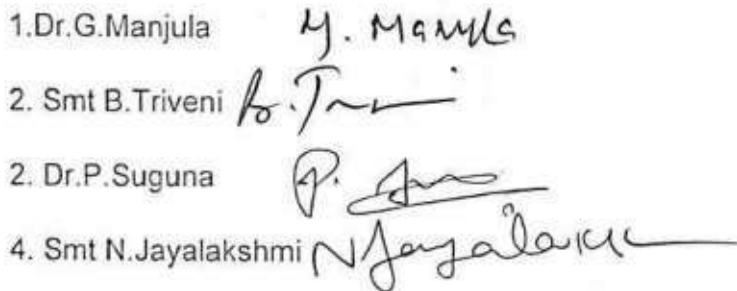 1.Dr.G.Manjula G. Manjula
2. Smt B.Triveni B.
2. Dr.P.Suguna P.
4. Smt N.Jayalakshmi N Jayalak